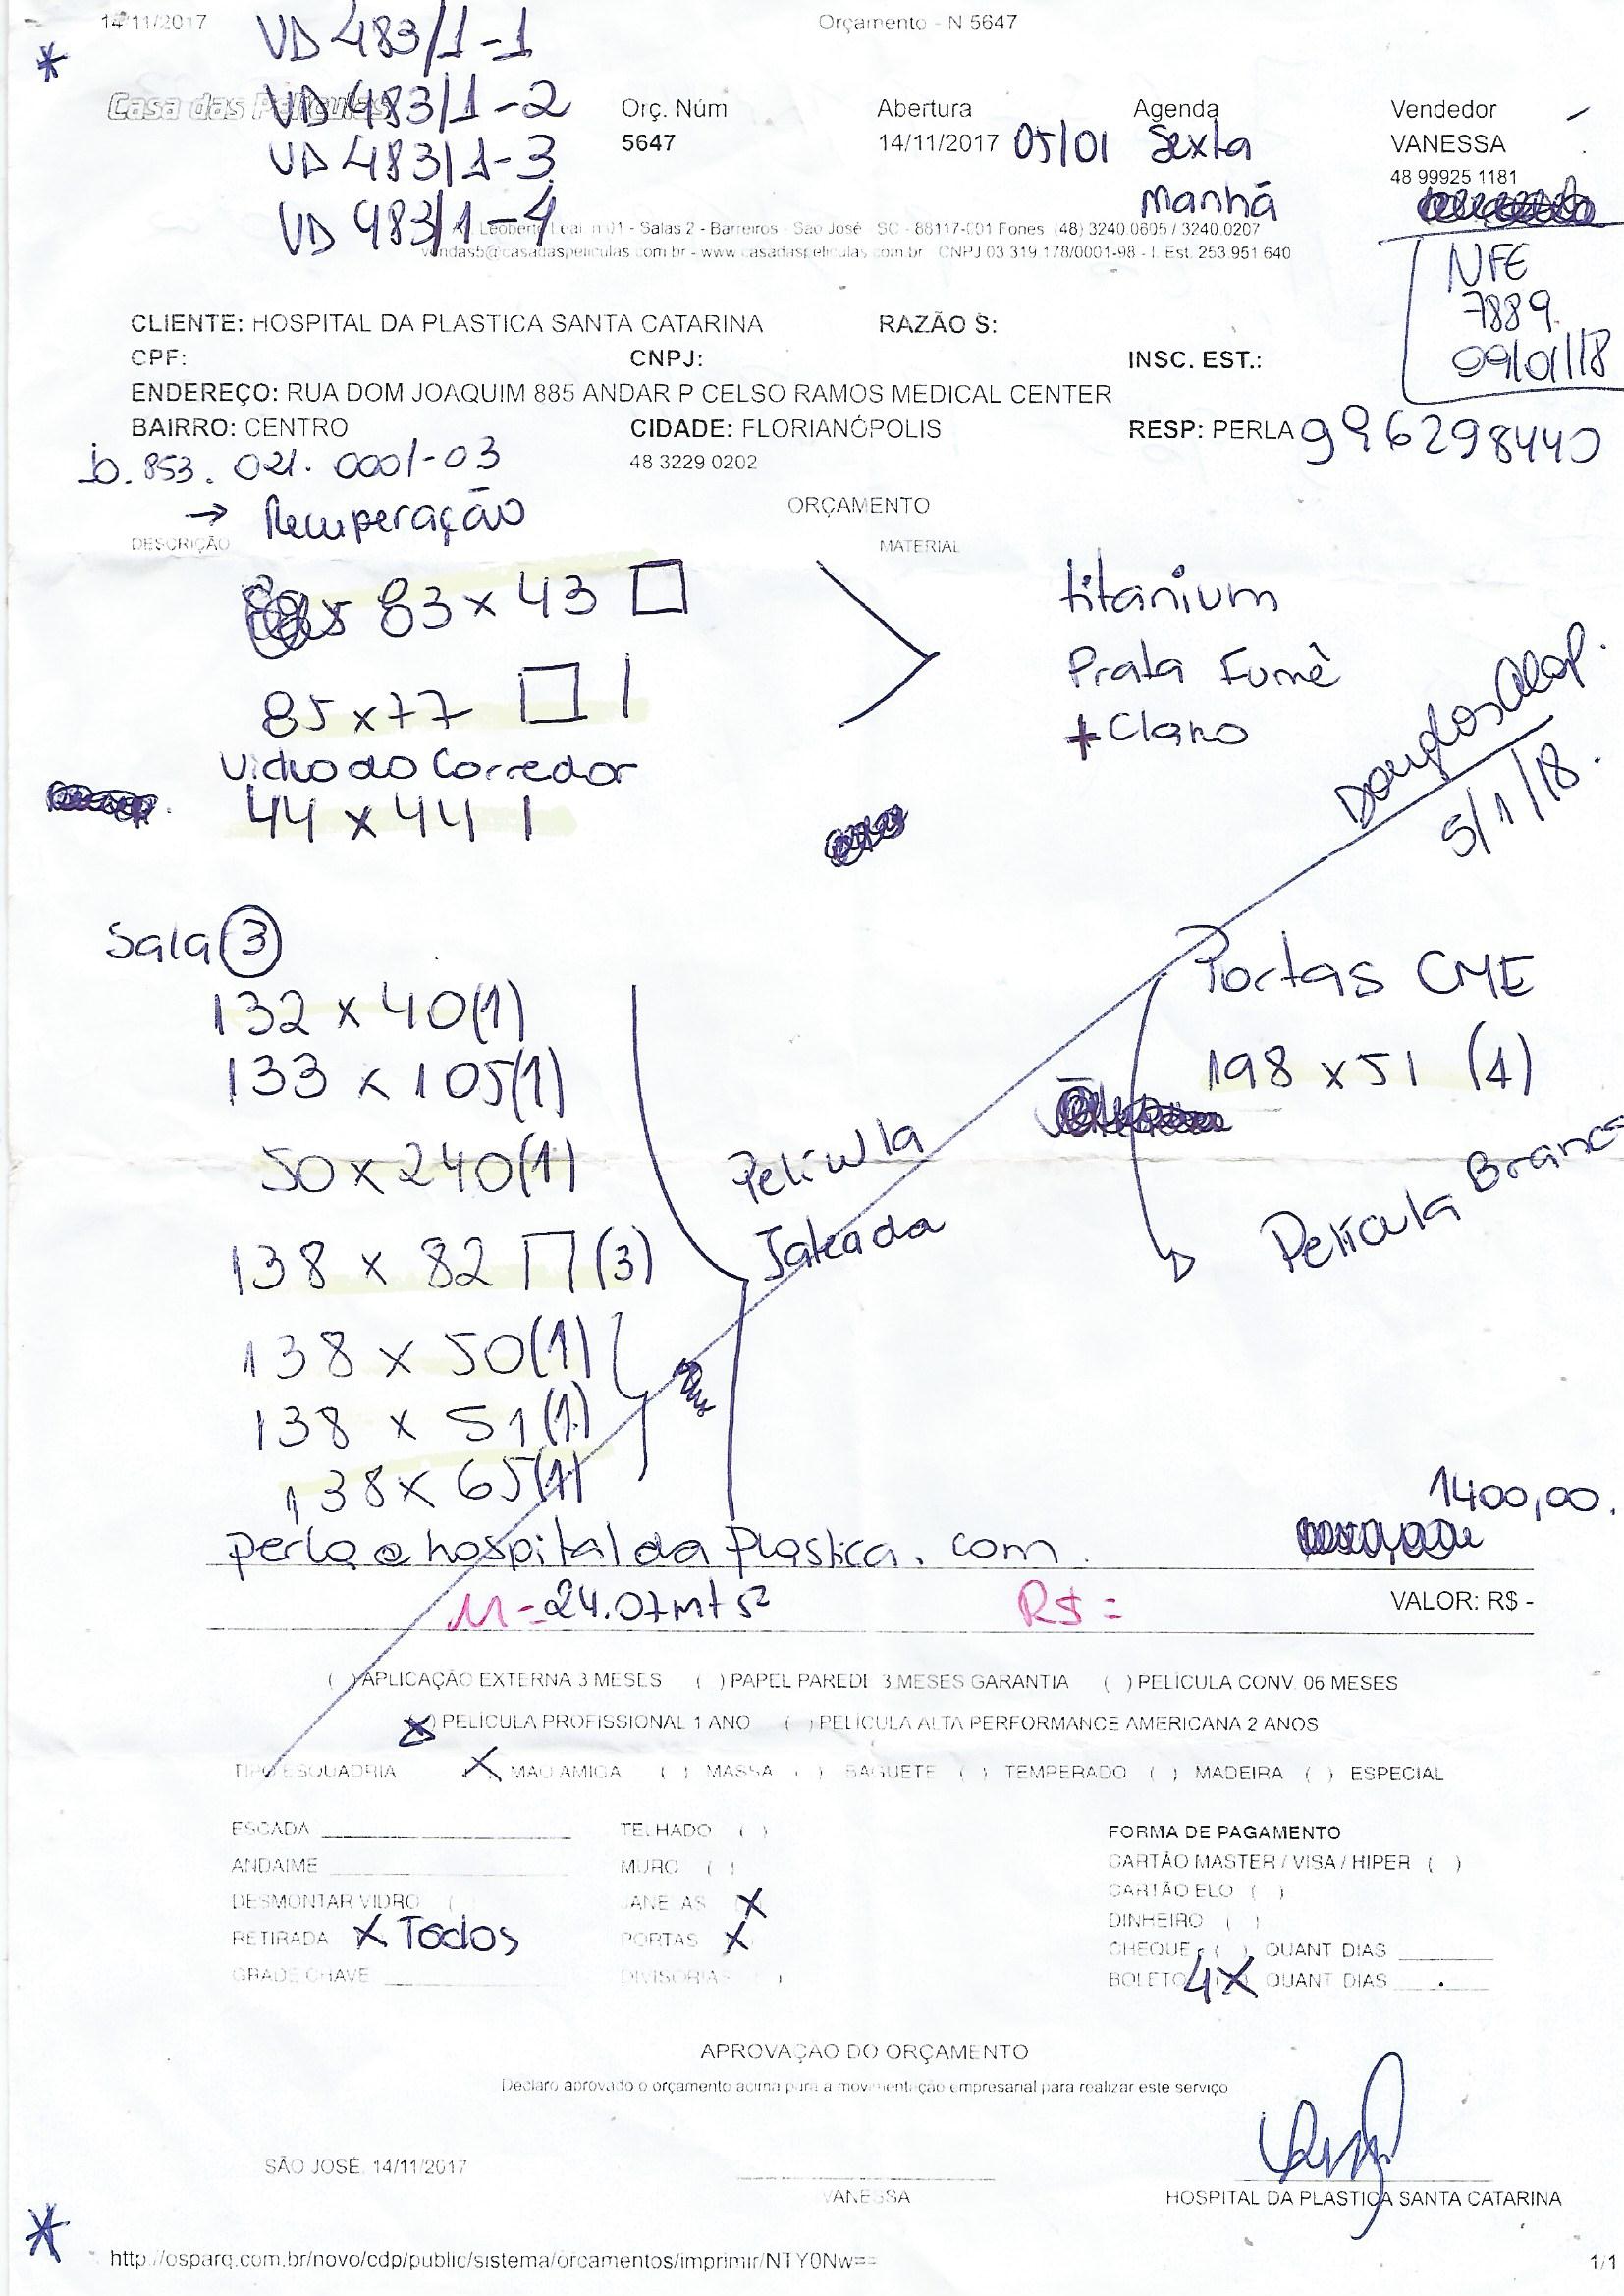 14/11/2017 Orçamento - N 5647
VD 483/1-1
VD 483/1-2
VD 483/1-3
VD 483/1-4
Casa das Películas
Orç. Núm Abertura Agenda Vendedor
5647 14/11/2017 05/01 Sexta VANESSA
Manhã 48 99925 1181
Salas 2 - Barreiros - São José SC - 88117-001 Fones (48) 3240.0605 / 3240.0207
vendas5@casadaspeliculas.com.br - www.casadaspeliculas.com.br CNPJ 03.319.178/0001-98 - I. Est. 253.951.640
NFE
7889
09/01/18
CLIENTE: HOSPITAL DA PLASTICA SANTA CATARINA RAZÃO S:
CPF: CNPJ: INSC. EST.:
ENDEREÇO: RUA DOM JOAQUIM 885 ANDAR P CELSO RAMOS MEDICAL CENTER
BAIRRO: CENTRO CIDADE: FLORIANÓPOLIS RESP: PERLA 996298440
853.021.0001-03 48 3229 0202
→ Recuperação ORÇAMENTO
DESCRIÇÃO MATERIAL
83 x 43 titanium
85 x 77 1 Prata Fumê
+ Claro
Vidro do Corredor
44 x 44 1
Douglas
5/1/18.
Sala 3
132 x 40 (1)
133 x 105 (1)
50 x 240 (1)
138 x 82 (3)
138 x 50 (1)
138 x 51 (1)
138 x 65 (1)
Película
Jateada
Portas CME
198 x 51 (4)
Película Branca
1400,00.
perla@hospitaldaplastica.com.
M = 24.07mts² R$ = VALOR: R$ -
( ) APLICAÇÃO EXTERNA 3 MESES ( ) PAPEL PAREDE 3 MESES GARANTIA ( ) PELÍCULA CONV. 06 MESES
(X) PELÍCULA PROFISSIONAL 1 ANO ( ) PELÍCULA ALTA PERFORMANCE AMERICANA 2 ANOS
TIPO ESQUADRIA X MAO AMIGA ( ) MASSA ( ) BAGUETE ( ) TEMPERADO ( ) MADEIRA ( ) ESPECIAL
ESCADA TELHADO ( ) FORMA DE PAGAMENTO
ANDAIME MURO ( ) CARTÃO MASTER / VISA / HIPER ( )
DESMONTAR VIDRO ( ) JANELAS X CARTÃO ELO ( )
RETIRADA X Todos PORTAS X DINHEIRO ( )
GRADE CHAVE DIVISÓRIAS ( ) CHEQUE ( ) QUANT DIAS
BOLETO 4X QUANT DIAS
APROVAÇÃO DO ORÇAMENTO
Declaro aprovado o orçamento acima para a movimentação empresarial para realizar este serviço
SÃO JOSÉ, 14/11/2017
VANESSA HOSPITAL DA PLASTICA SANTA CATARINA
http://osparq.com.br/novo/cdp/public/sistema/orcamentos/imprimir/NTY0Nw== 1/1